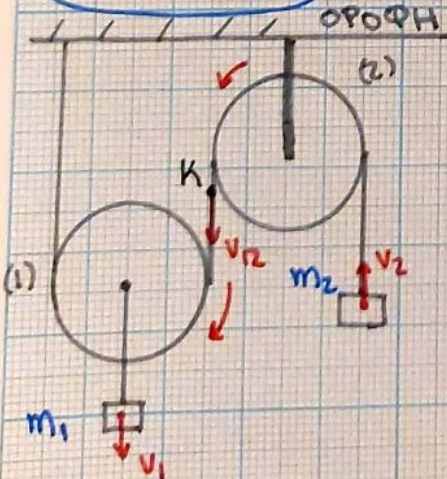 ΟΡΟΦΗ
(2)
K
V12
(1)
m2
V2
m1
V1